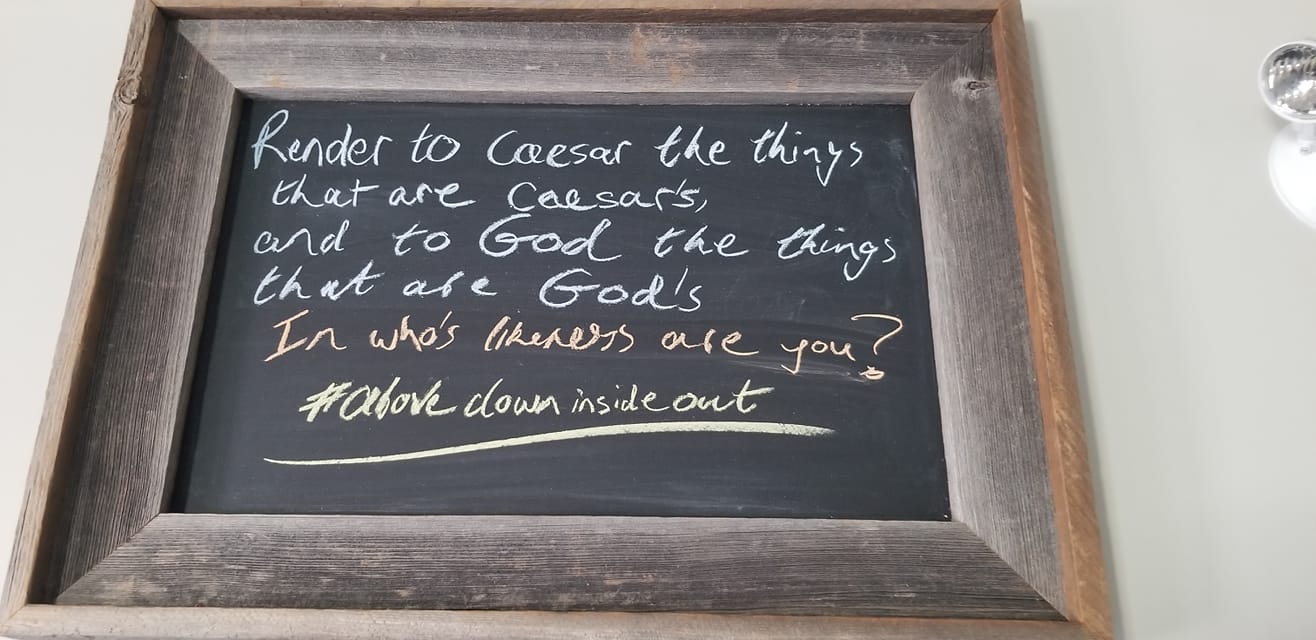 Render to Caesar the things
that are Caesar's,
and to God the things
that are God's
In who's likeness are you?
#abovedowninsideout